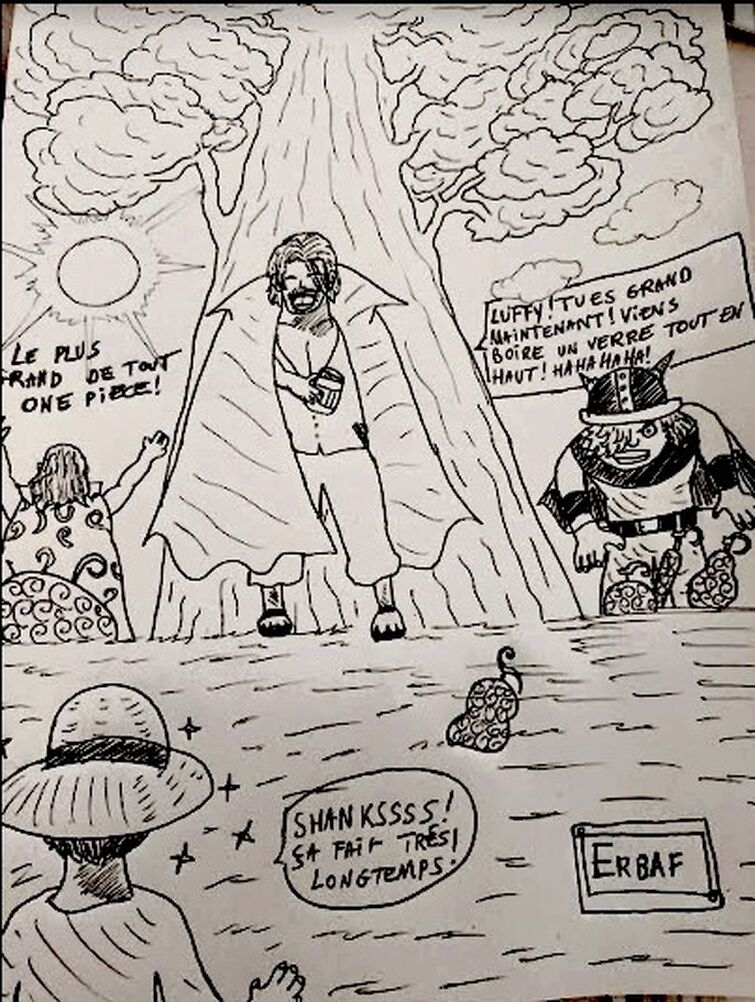 LUFFY! TU ES GRAND
MAINTENANT! VIENS
BOIRE UN VERRE TOUT EN
HAUT! HAHAHAHA!
LE PLUS
RAND DE TOUT
ONE PIECE!
SHANKSSSS!
ÇA FAIT TRÈS!
LONGTEMPS.
ERBAF